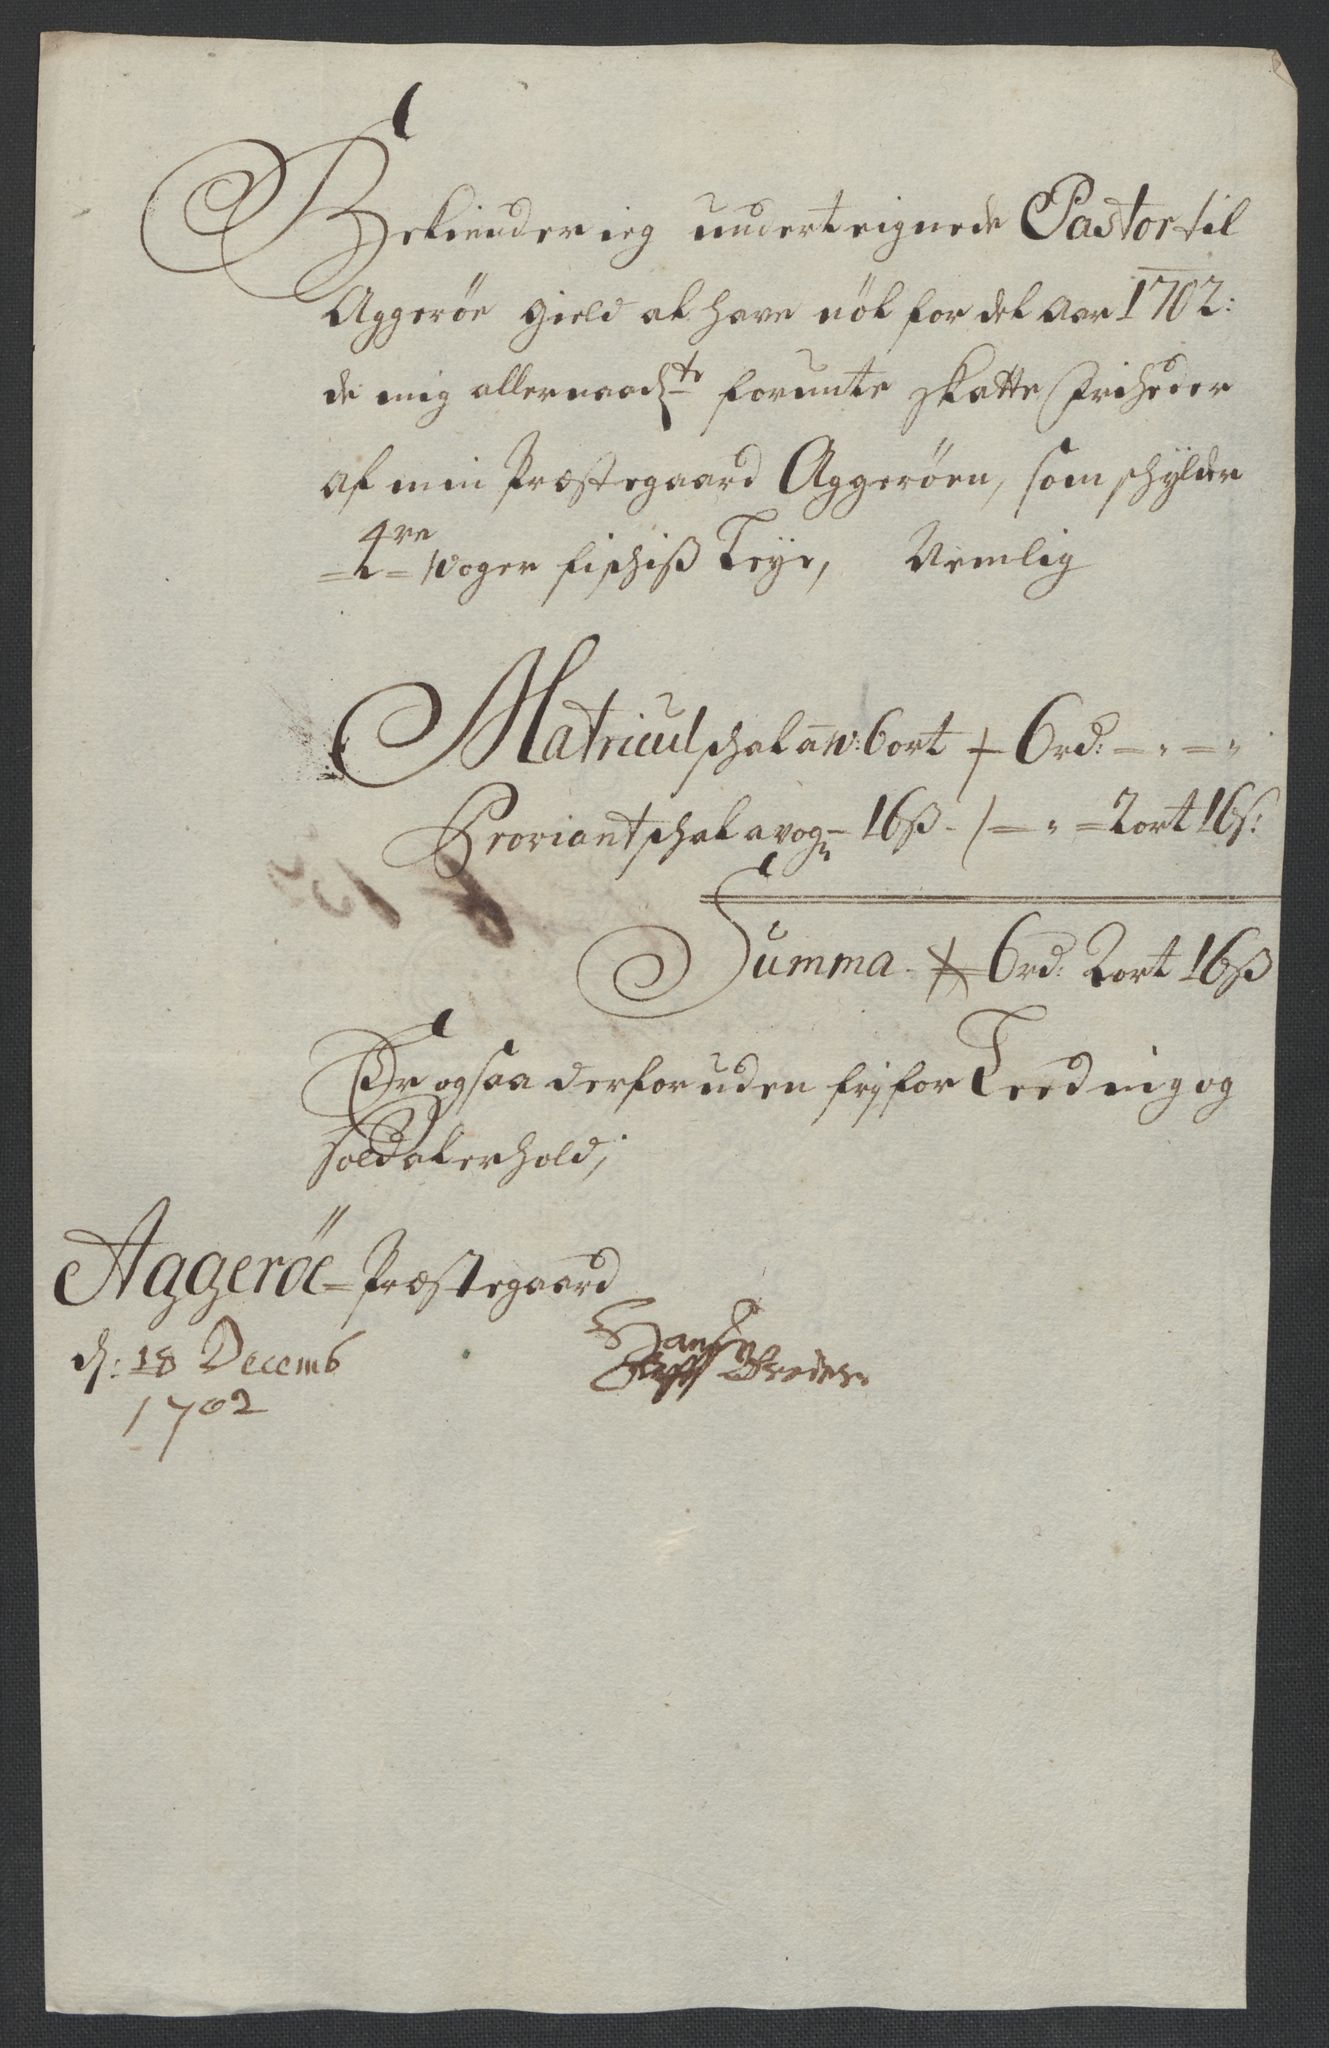 Bekiender ieg underteignede Pastor til
Aggeröe Gield at have nöt for det Aar 1702:
de mig allernaadste forunte skatte friheder
af min Præstegaard Aggeröen, som schylder
=4re= woger fischis Leye, Nemlig
Matricul schat a w: 6 ort + 6 rd: - " - "
Proviant schat a vogn 16 ß - / - " - 2 ort 16 ß:
Summa - 6 rd: 2 ort 16 ß
Er ogsaa der foruden frj for Leedning og
Soldater hold;
Aggeröe Præstegaard
d: 18 Decemb
1702